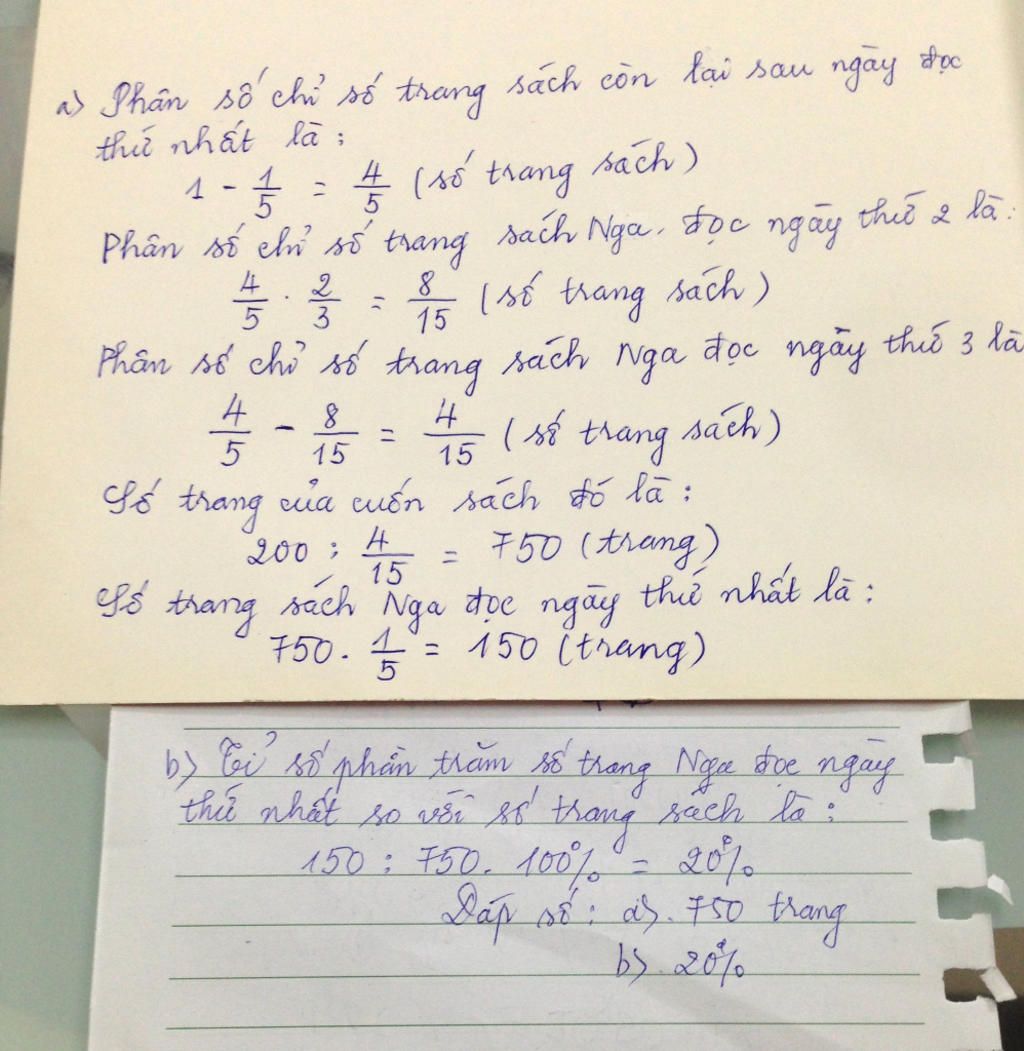 a) Phân số chỉ số trang sách còn lại sau ngày đọc
thứ nhất là:
1 - 1/5 = 4/5 (số trang sách)
Phân số chỉ số trang sách Nga đọc ngày thứ 2 là:
4/5 . 2/3 = 8/15 (số trang sách)
Phân số chỉ số trang sách Nga đọc ngày thứ 3 là
4/5 - 8/15 = 4/15 (số trang sách)
Số trang của cuốn sách đó là:
200 : 4/15 = 750 (trang)
Số trang sách Nga đọc ngày thứ nhất là:
750 . 1/5 = 150 (trang)
b) Tỉ số phần trăm số trang Nga đọc ngày
thứ nhất so với số trang sách là:
150 : 750 . 100% = 20%
Đáp số: a) 750 trang
b) 20%